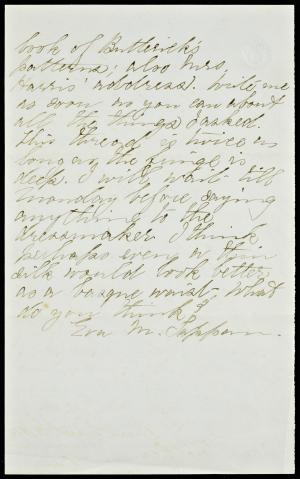 book of Butterick's
patterns; also Mrs.
Harris' address. Write me
as soon as you can about
all the things I asked.
This thread is twice as
long as the fringe is
deep. I will wait till
Monday before saying
anything to the
dressmaker. I think
perhaps even a thin
silk would look better
as a basque waist. What
do you think?
Eva M. Tappan.